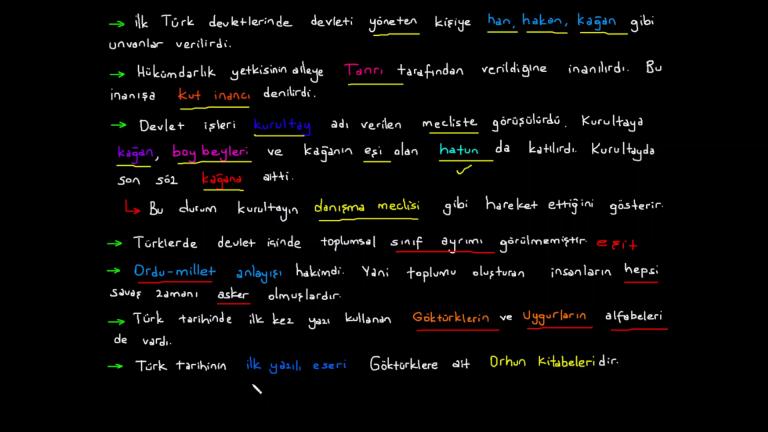 → İlk Türk devletlerinde devleti yöneten kişiye han, hakan, kağan gibi
unvanlar verilirdi.
→ Hükümdarlık yetkisinin aileye Tanrı tarafından verildiğine inanılırdı. Bu
inanışa kut inancı denilirdi.
→ Devlet işleri kurultay adı verilen mecliste görüşülürdü. Kurultaya
kağan, boy beyleri ve kağanın eşi olan hatun da katılırdı. Kurultayda
son söz kağana aitti.
↳ Bu durum kurultayın danışma meclisi gibi hareket ettiğini gösterir.
→ Türklerde devlet içinde toplumsal sınıf ayrımı görülmemiştir. eşit
→ Ordu-millet anlayışı hakimdi. Yani toplumu oluşturan insanların hepsi
savaş zamanı asker olmuşlardır.
→ Türk tarihinde ilk kez yazı kullanan Göktürklerin ve Uygurların alfabeleri
de vardı.
→ Türk tarihinin ilk yazılı eseri Göktürklere ait Orhun kitabeleridir.